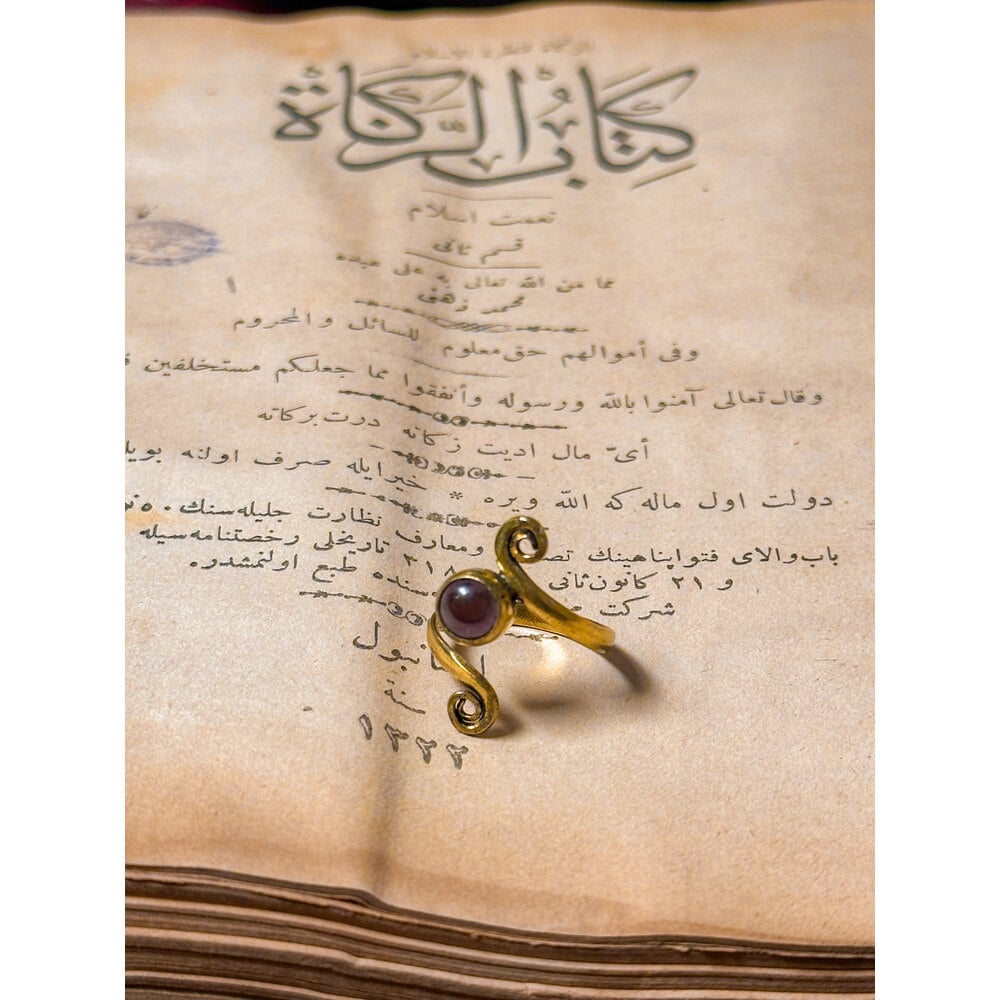 كتاب الزكاة
نعمت اسلام
قسم ثانى
مما من الله تعالى به على عبده
محمد ذهنى
١
وفى أموالهم حق معلوم للسائل والمحروم
وقال تعالى آمنوا بالله ورسوله وأنفقوا مما جعلكم مستخلفين
أىّ مال اديت زكاته درت بركاته
دولت اول ماله كه الله ويره * خيرايله صرف اولنه
باب والاى فتواپناهينك ومعارف نظارت جليله سنك
و ٢١ كانون ثانى ٣١٨ تاريخلى رخصتنامه سيله
شركت سنده طبع اولنمشدر.
سنة